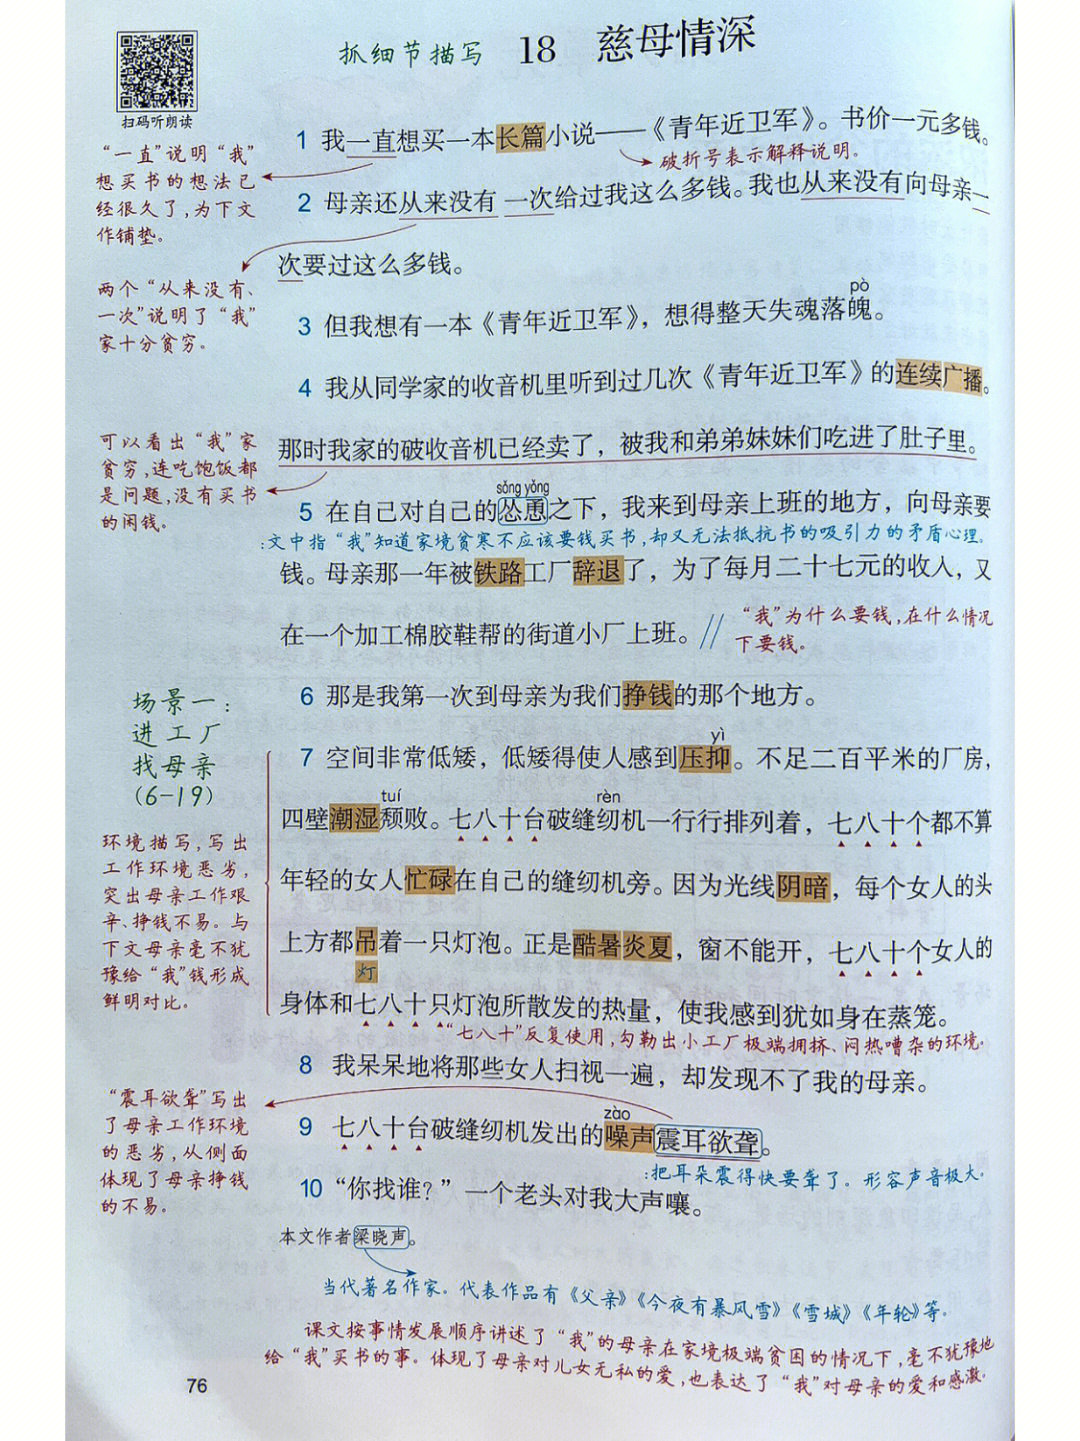 抓细节描写 18 慈母情深
扫码听朗读
1 我一直想买一本长篇小说——《青年近卫军》。书价一元多钱。
破折号表示解释说明。
“一直”说明“我”
想买书的想法已
经很久了,为下文
作铺垫。
2 母亲还从来没有一次给过我这么多钱。我也从来没有向母亲一
次要过这么多钱。
两个“从来没有、
一次”说明了“我”
家十分贫穷。
pò
3 但我想有一本《青年近卫军》，想得整天失魂落魄。
4 我从同学家的收音机里听到过几次《青年近卫军》的连续广播。
那时我家的破收音机已经卖了，被我和弟弟妹妹们吃进了肚子里。
可以看出“我”家
贫穷,连吃饱饭都
是问题,没有买书
的闲钱。
sǒng yǒng
5 在自己对自己的怂恿之下，我来到母亲上班的地方，向母亲要
:文中指“我”知道家境贫寒不应该要钱买书,却又无法抵抗书的吸引力的矛盾心理。
钱。母亲那一年被铁路工厂辞退了，为了每月二十七元的收入，又
在一个加工棉胶鞋帮的街道小厂上班。//
“我”为什么要钱,在什么情况
下要钱。
6 那是我第一次到母亲为我们挣钱的那个地方。
场景一:
进工厂
找母亲
(6-19)
yì
7 空间非常低矮，低矮得使人感到压抑。不足二百平米的厂房，
tuí rèn
四壁潮湿颓败。七八十台破缝纫机一行行排列着，七八十个都不算
年轻的女人忙碌在自己的缝纫机旁。因为光线阴暗，每个女人的头
上方都吊着一只灯泡。正是酷暑炎夏，窗不能开，七八十个女人的
灯
身体和七八十只灯泡所散发的热量，使我感到犹如身在蒸笼。
“七八十”反复使用,勾勒出小工厂极端拥挤、闷热嘈杂的环境。
环境描写,写出
工作环境恶劣,
突出母亲工作艰
辛、挣钱不易。与
下文母亲毫不犹
豫给“我”钱形成
鲜明对比。
8 我呆呆地将那些女人扫视一遍，却发现不了我的母亲。
zào
9 七八十台破缝纫机发出的噪声震耳欲聋。
:把耳朵震得快要聋了。形容声音极大。
“震耳欲聋”写出
了母亲工作环境
的恶劣,从侧面
体现了母亲挣钱
的不易。
10 “你找谁？”一个老头对我大声嚷。
本文作者梁晓声。
当代著名作家。代表作品有《父亲》《今夜有暴风雪》《雪城》《年轮》等。
课文按事情发展顺序讲述了“我”的母亲在家境极端贫困的情况下,毫不犹豫地
给“我”买书的事。体现了母亲对儿女无私的爱,也表达了“我”对母亲的爱和感激。
76